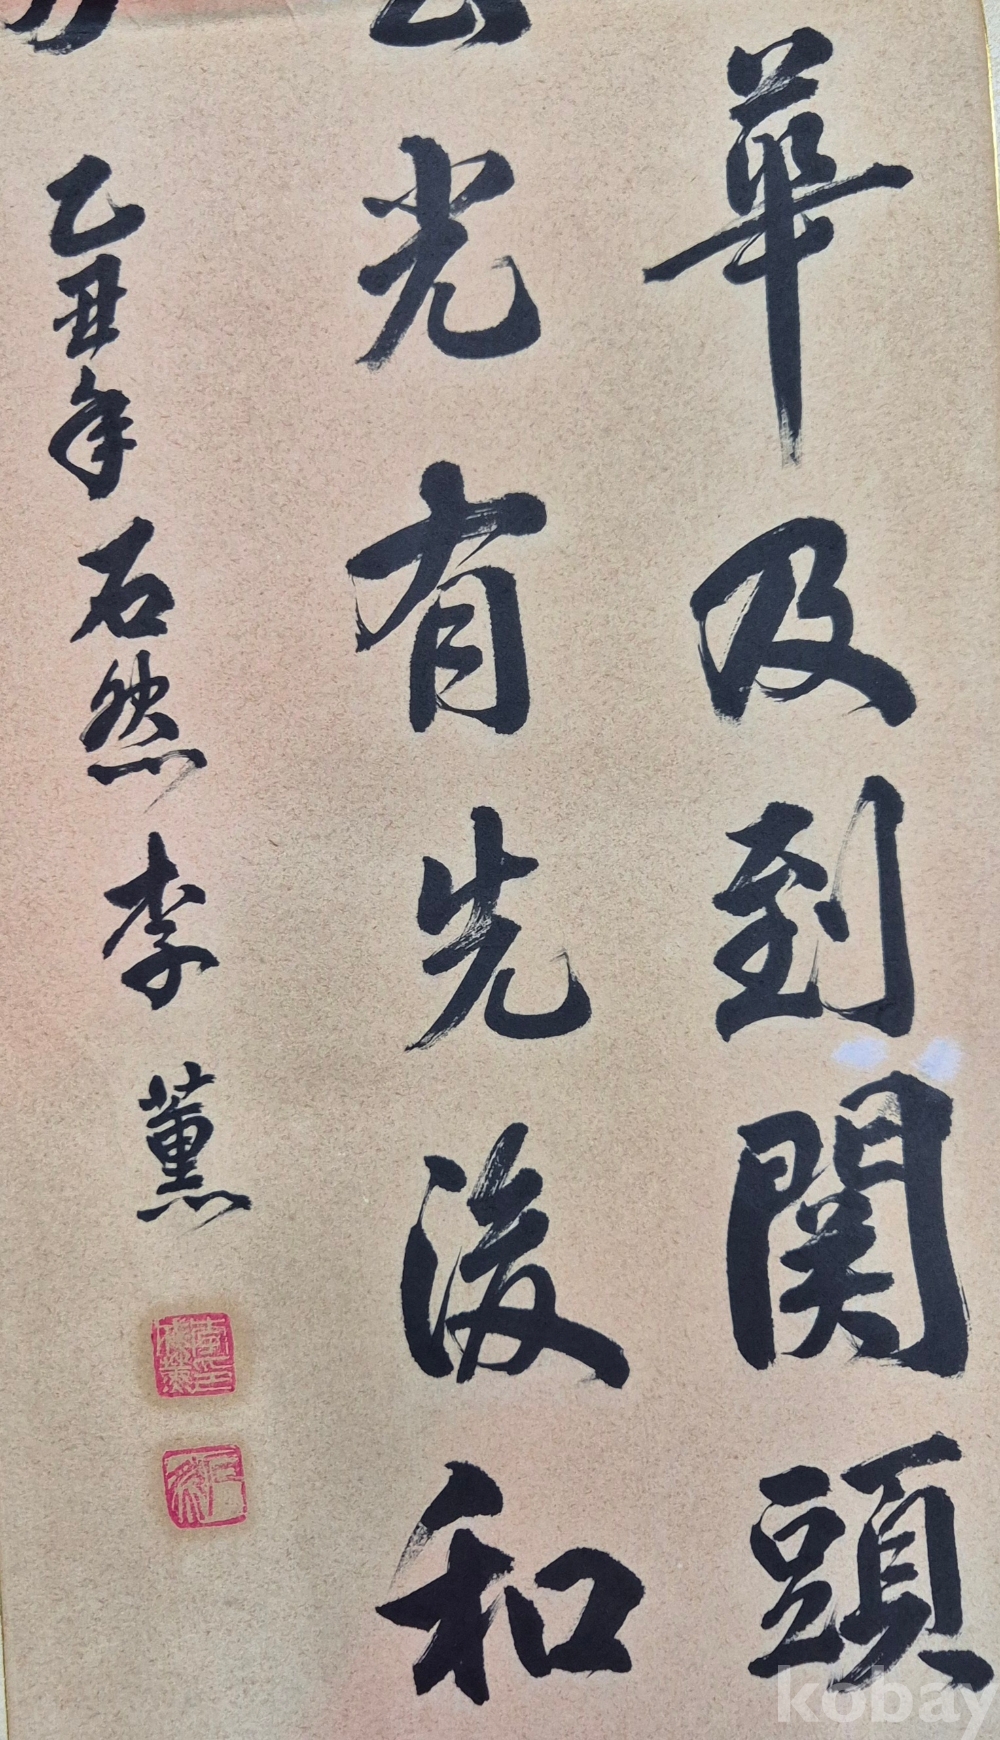 華及到関頭
光有先後和
乙丑年 石然 李薰
kobay